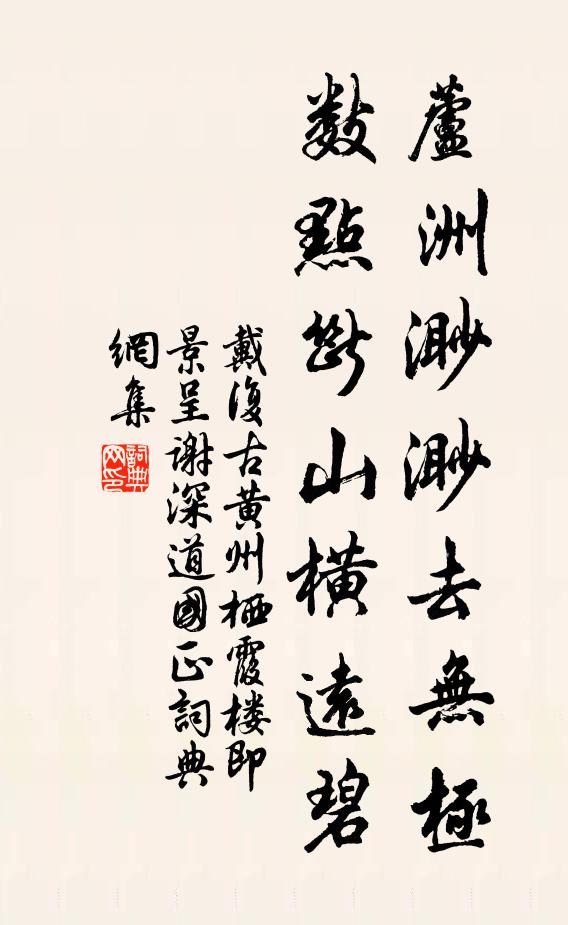 蘆洲渺渺去無極
數點斷山橫遠碧
戴復古黃州栖霞楼即
景呈谢深道國正詞典
網集
詞典
网印